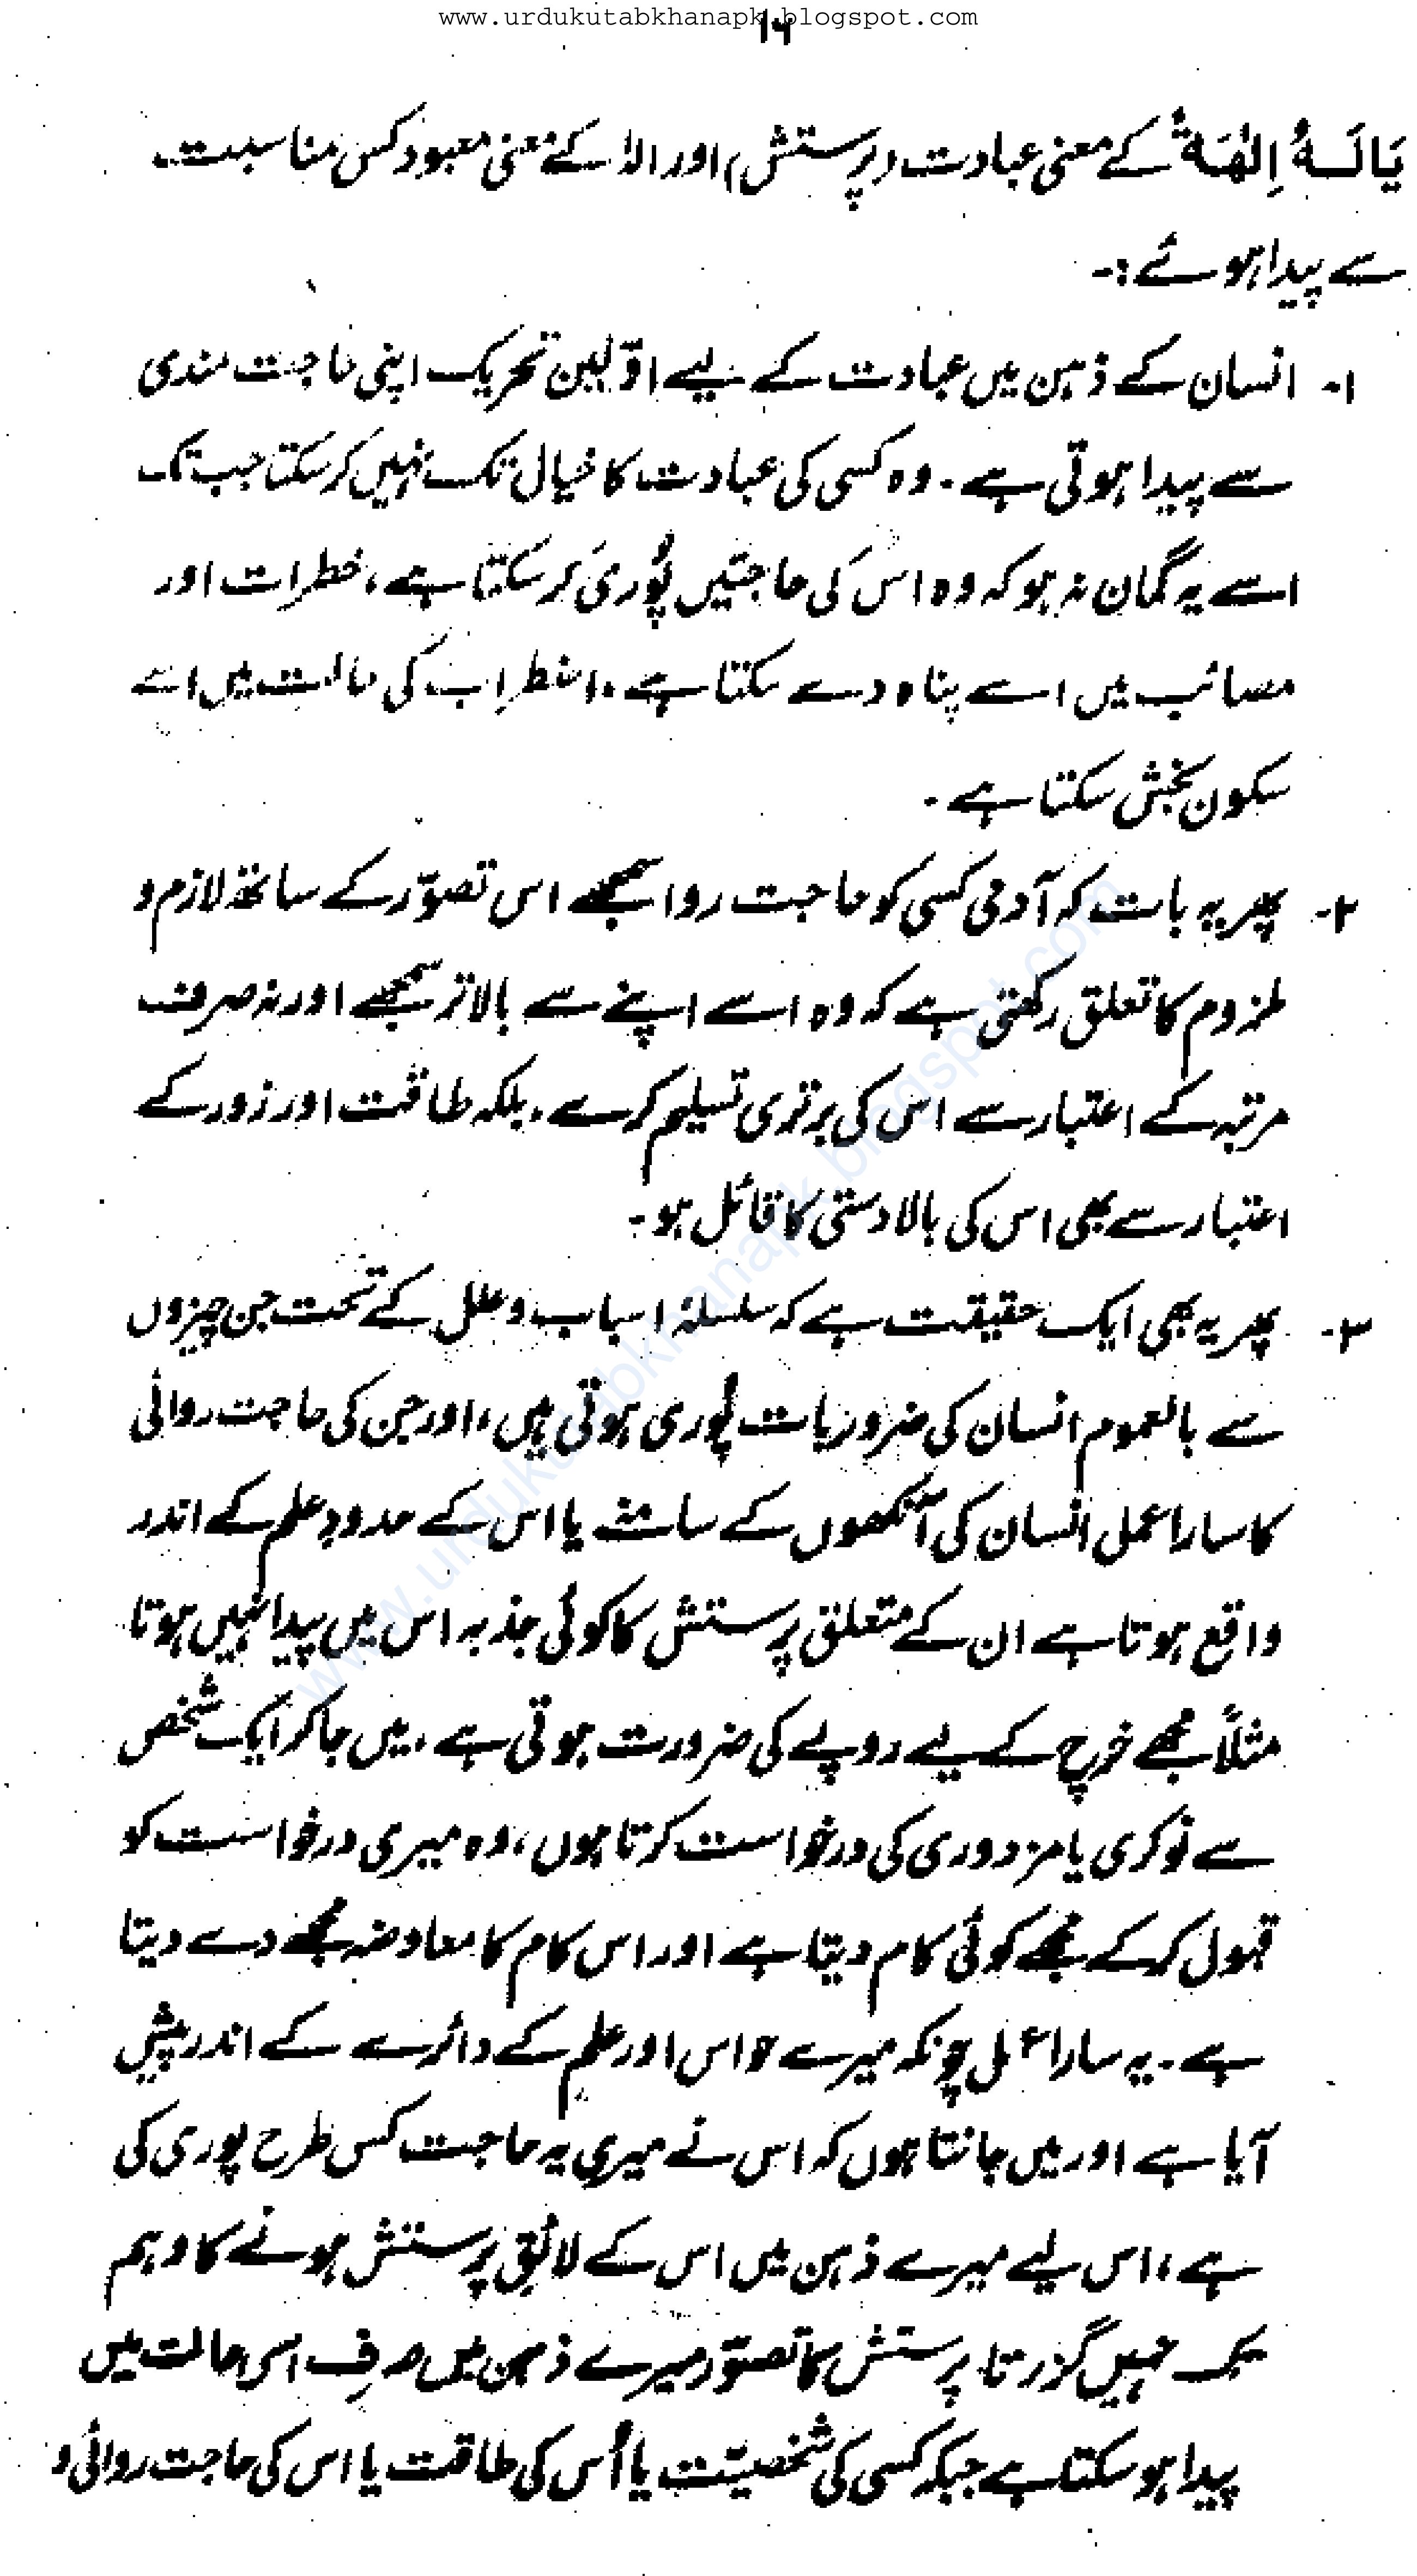 www.urdukutabkhanapk.blogspot.com
۱۶
یَالَہُ اِلٰھَۃً کے معنی عبادت (پرستش) اور الٰہ کے معنی معبود کس مناسبت
سے پیدا ہوئے :-
۱- انسان کے ذہن میں عبادت کے لیے اوّلین تحریک اپنی حاجت مندی
سے پیدا ہوتی ہے۔ وہ کسی کی عبادت کا خیال تک نہیں کر سکتا جب تک
اسے یہ گمان نہ ہو کہ وہ اس کی حاجتیں پُوری کر سکتا ہے، خطرات اور
مصائب میں اسے پناہ دے سکتا ہے، اضطراب کی حالت میں اسے
سکون بخش سکتا ہے۔
۲- پھر یہ بات کہ آدمی کسی کو حاجت روا سمجھے اس تصوّر کے ساتھ لازم و
ملزوم کا تعلق رکھتی ہے کہ وہ اسے اپنے سے بالاتر سمجھے اور نہ صرف
مرتبہ کے اعتبار سے اس کی برتری تسلیم کرے، بلکہ طاقت اور زور کے
اعتبار سے بھی اس کی بالادستی کا قائل ہو۔
۳- پھر یہ بھی ایک حقیقت ہے کہ سلسلۂ اسباب و علل کے تحت جن چیزوں
سے بالعموم انسان کی ضروریات پُوری ہوتی ہیں، اور جن کی حاجت روائی
کا سارا عمل انسان کی آنکھوں کے سامنے یا اس کے حدودِ علم کے اندر
واقع ہوتا ہے ان کے متعلق پرستش کا کوئی جذبہ اس میں پیدا نہیں ہوتا
مثلاً مجھے خرچ کے لیے روپے کی ضرورت ہوتی ہے، میں جا کر ایک شخص
سے نوکری یا مزدوری کی درخواست کرتا ہوں، وہ میری درخواست کو
قبول کر کے مجھے کوئی کام دیتا ہے اور اس کام کا معاوضہ مجھے دے دیتا
ہے۔ یہ سارا عمل چونکہ میرے حواس اور علم کے دائرے کے اندر پیش
آیا ہے اور میں جانتا ہوں کہ اس نے میری یہ حاجت کس طرح پوری کی
ہے، اس لیے میرے ذہن میں اس کے لائقِ پرستش ہونے کا وہم
تک نہیں گزرتا۔ پرستش کا تصوّر میرے ذہن میں صرف اسی حالت میں
پیدا ہو سکتا ہے جبکہ کسی کی شخصیّت یا اُس کی طاقت یا اس کی حاجت روائی و
www.urdukutabkhanapk.blogspot.com